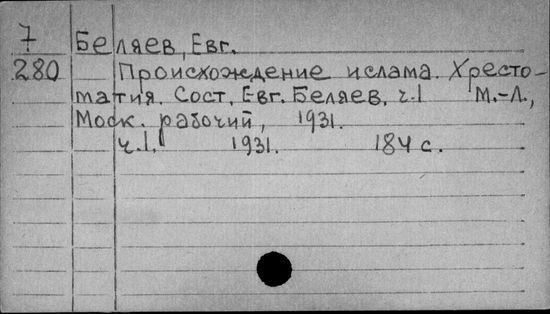 7 Беляев, Евг.
280 Происхождение ислама. Хресто-
матия. Сост. Евг. Беляев. ч.1 М.-Л.,
Моск. рабочий, 1931.
ч.1. 1931. 184 с.